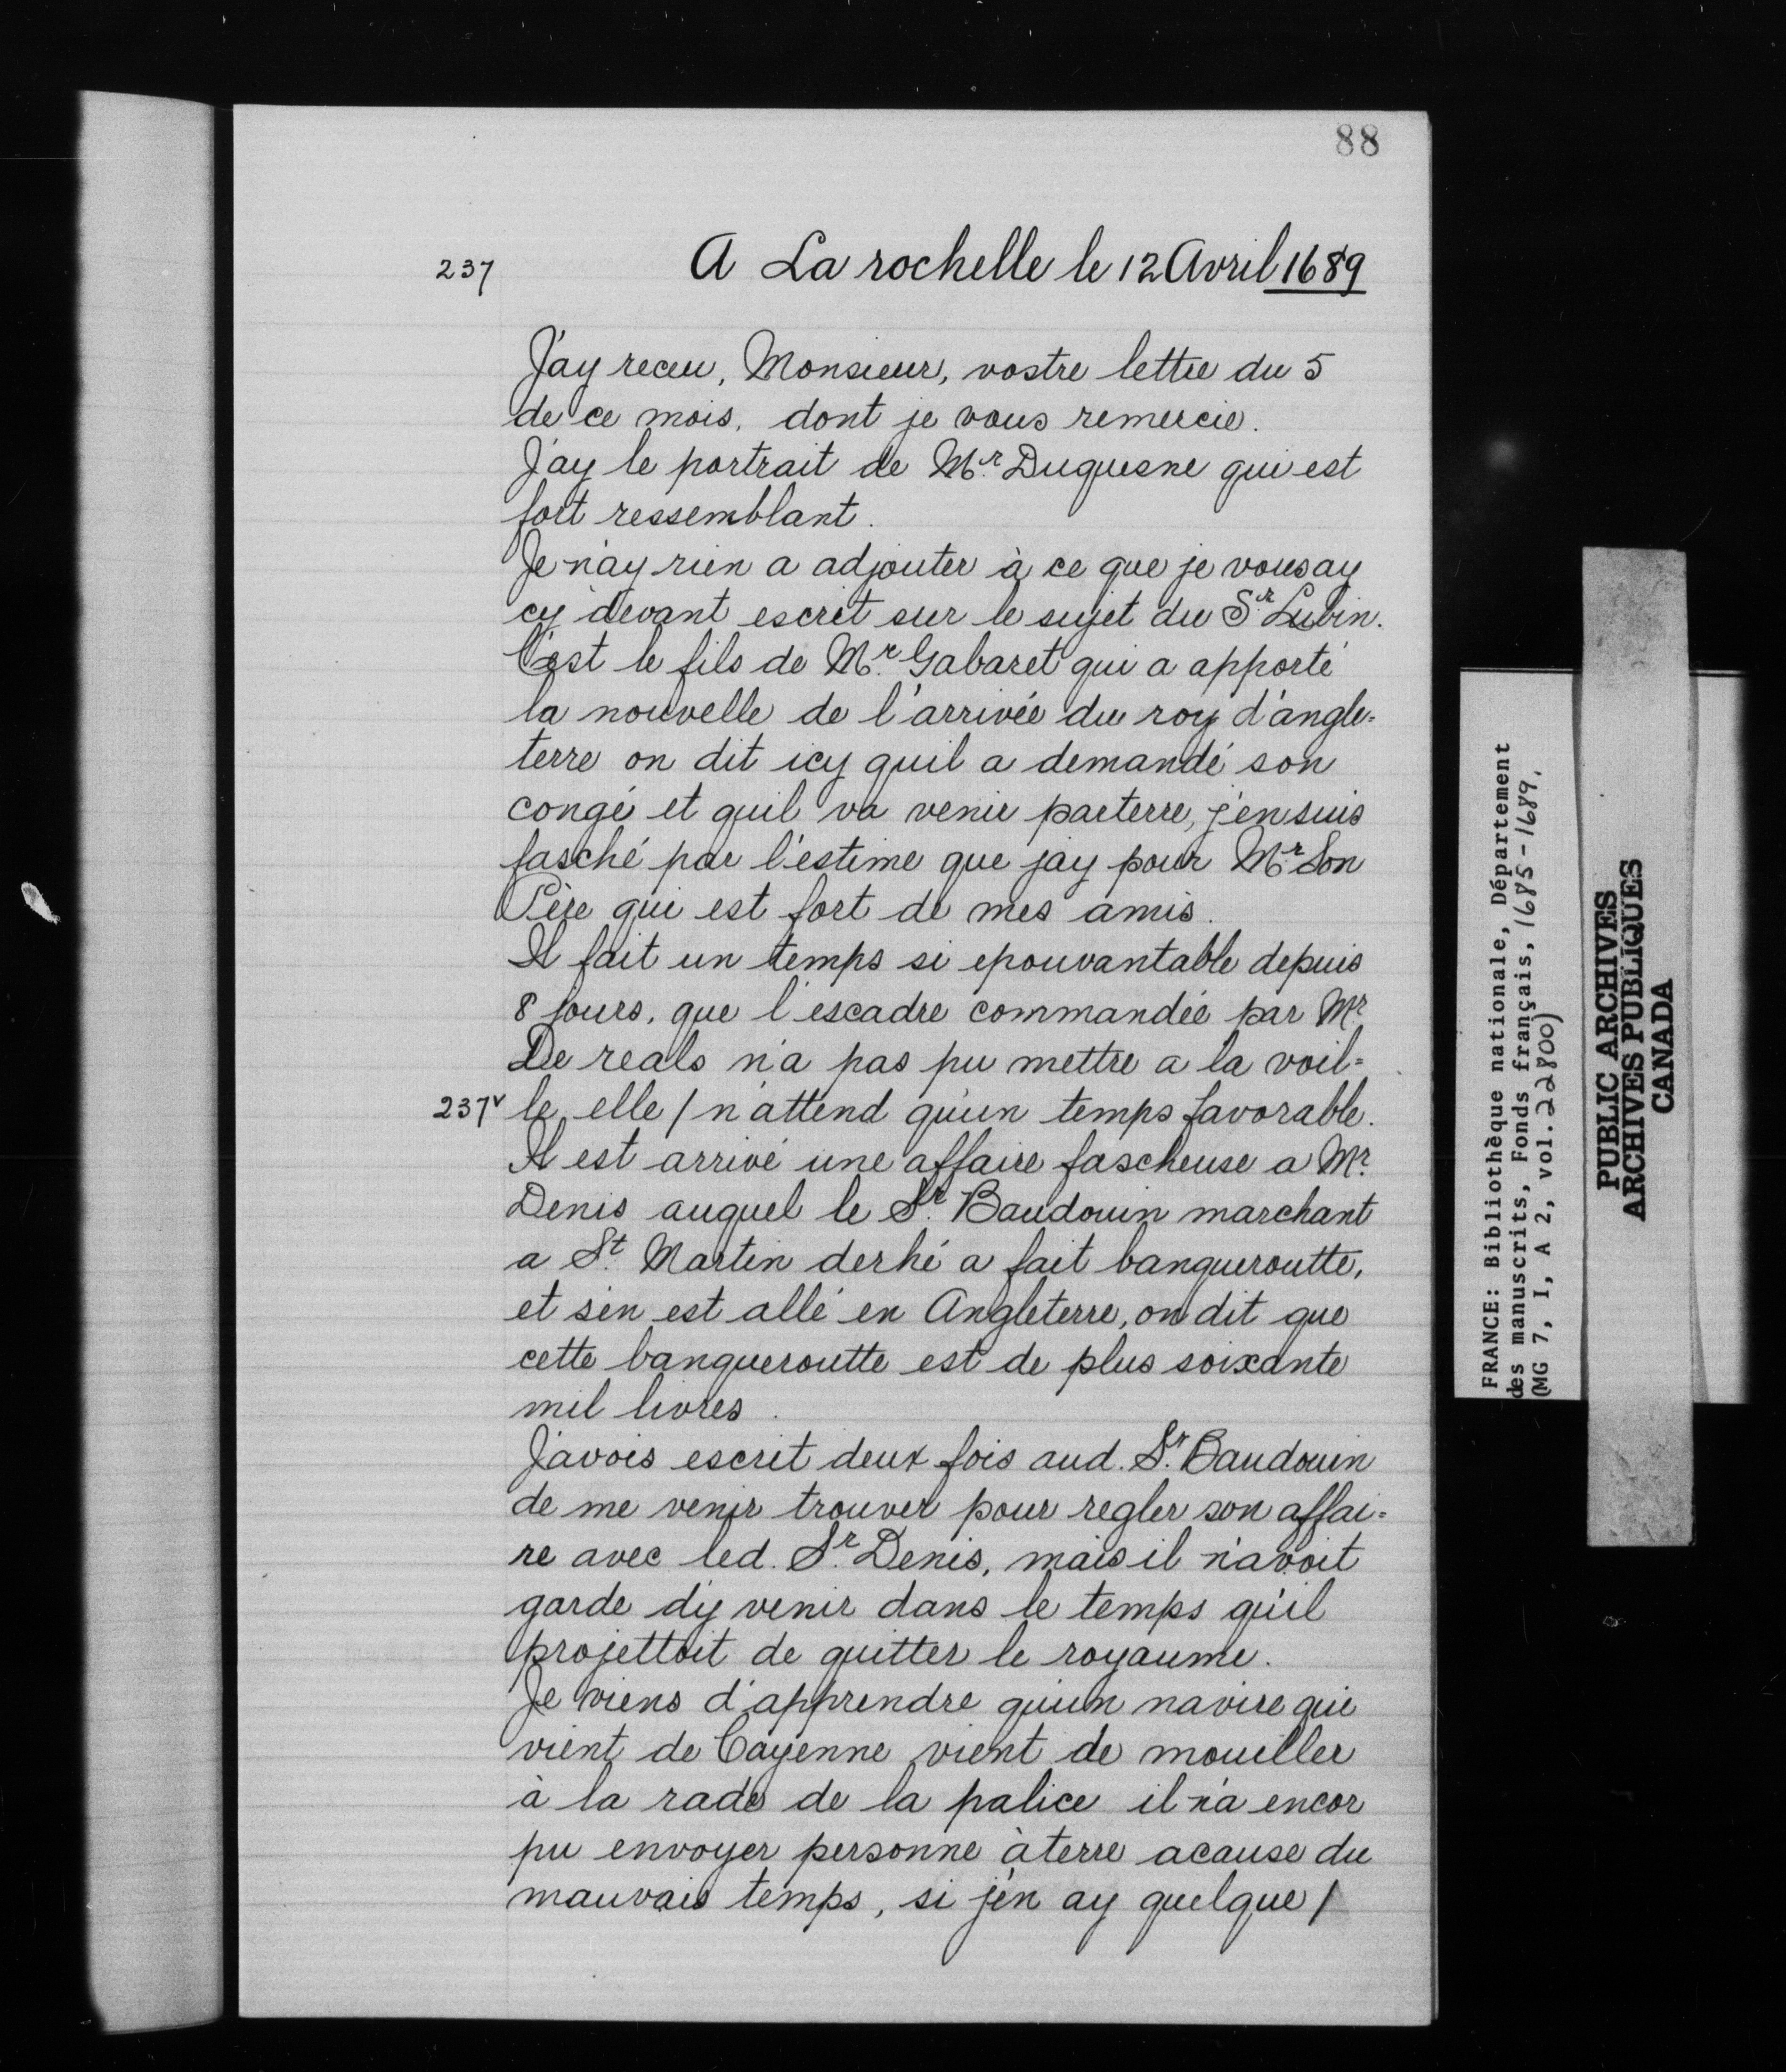 88
237
A La rochelle le 12 Avril 1689
J'ay receu, Monsieur, vostre lettre du 5
de ce mois, dont je vous remercie.
J'ay le portrait de Mr. Duquesne qui est
fort ressemblant.
Je n'ay rien a adjouter à ce que je vous ay
cy devant escrit sur le sujet du Sr. Lubin.
C'est le fils de Mr. Gabaret qui a apporté
la nouvelle de l'arrivée du roy d'angle=
terre on dit icy quil a demandé son
congé et quil va venir parterre, j'en suis
fasché par l'estime que jay pour Mr. Son
Père qui est fort de mes amis.
Il fait un temps si epouvantable depuis
8 jours, que l'escadre commandée par Mr.
De reals n'a pas pu mettre a la voil=
237v le, elle / n'attend qu'un temps favorable.
Il est arrivé une affaire fascheuse a Mr.
Denis auquel le Sr. Baudouin marchant
a St. Martin derhé a fait banqueroutte,
et s'en est allé en Angleterre, on dit que
cette banqueroutte est de plus soixante
mil livres.
J'avois escrit deux fois aud. Sr. Baudouin
de me venir trouver pour regler son affai=
re avec led. Sr. Denis, mais il n'avoit
garde d'y venir dans le temps qu'il
projettoit de quitter le royaume.
Je viens d'apprendre qu'un navire qui
vient de Cayenne vient de mouiller
à la rade de la palice il n'a encor
pu envoyer personne à terre acause du
mauvais temps, si j'en ay quelque /
FRANCE: Bibliothèque nationale, Département
des manuscrits, Fonds français, 1685-1689.
(MG 7, I, A 2, vol. 22800)
PUBLIC ARCHIVES
ARCHIVES PUBLIQUES
CANADA